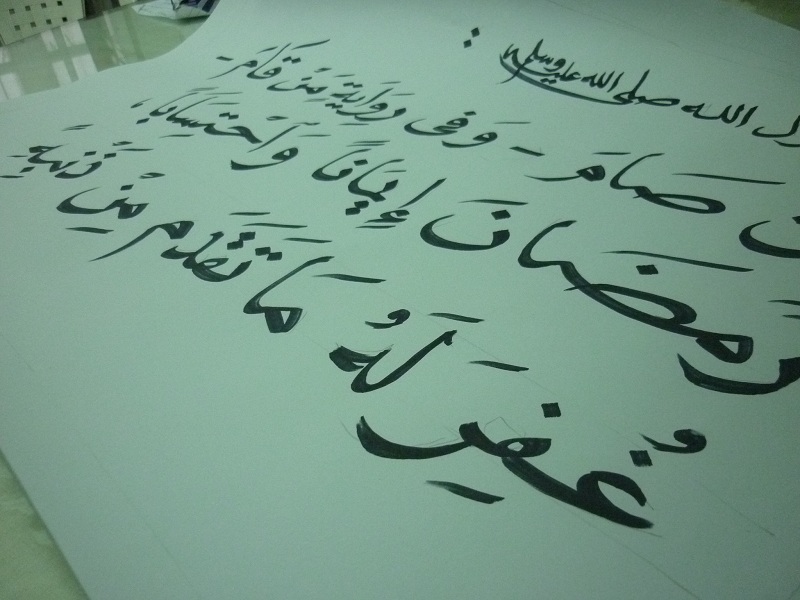 الله صلى الله عليه وسلم :
صَامَ - وَفِي رِوَايَةٍ مَنْ قَامَ -
رَمَضَانَ إِيمَانًا وَٱحْتِسَابًا ،
غُفِرَ لَهُ مَا تَقَدَّمَ مِنْ ذَنْبِهِ